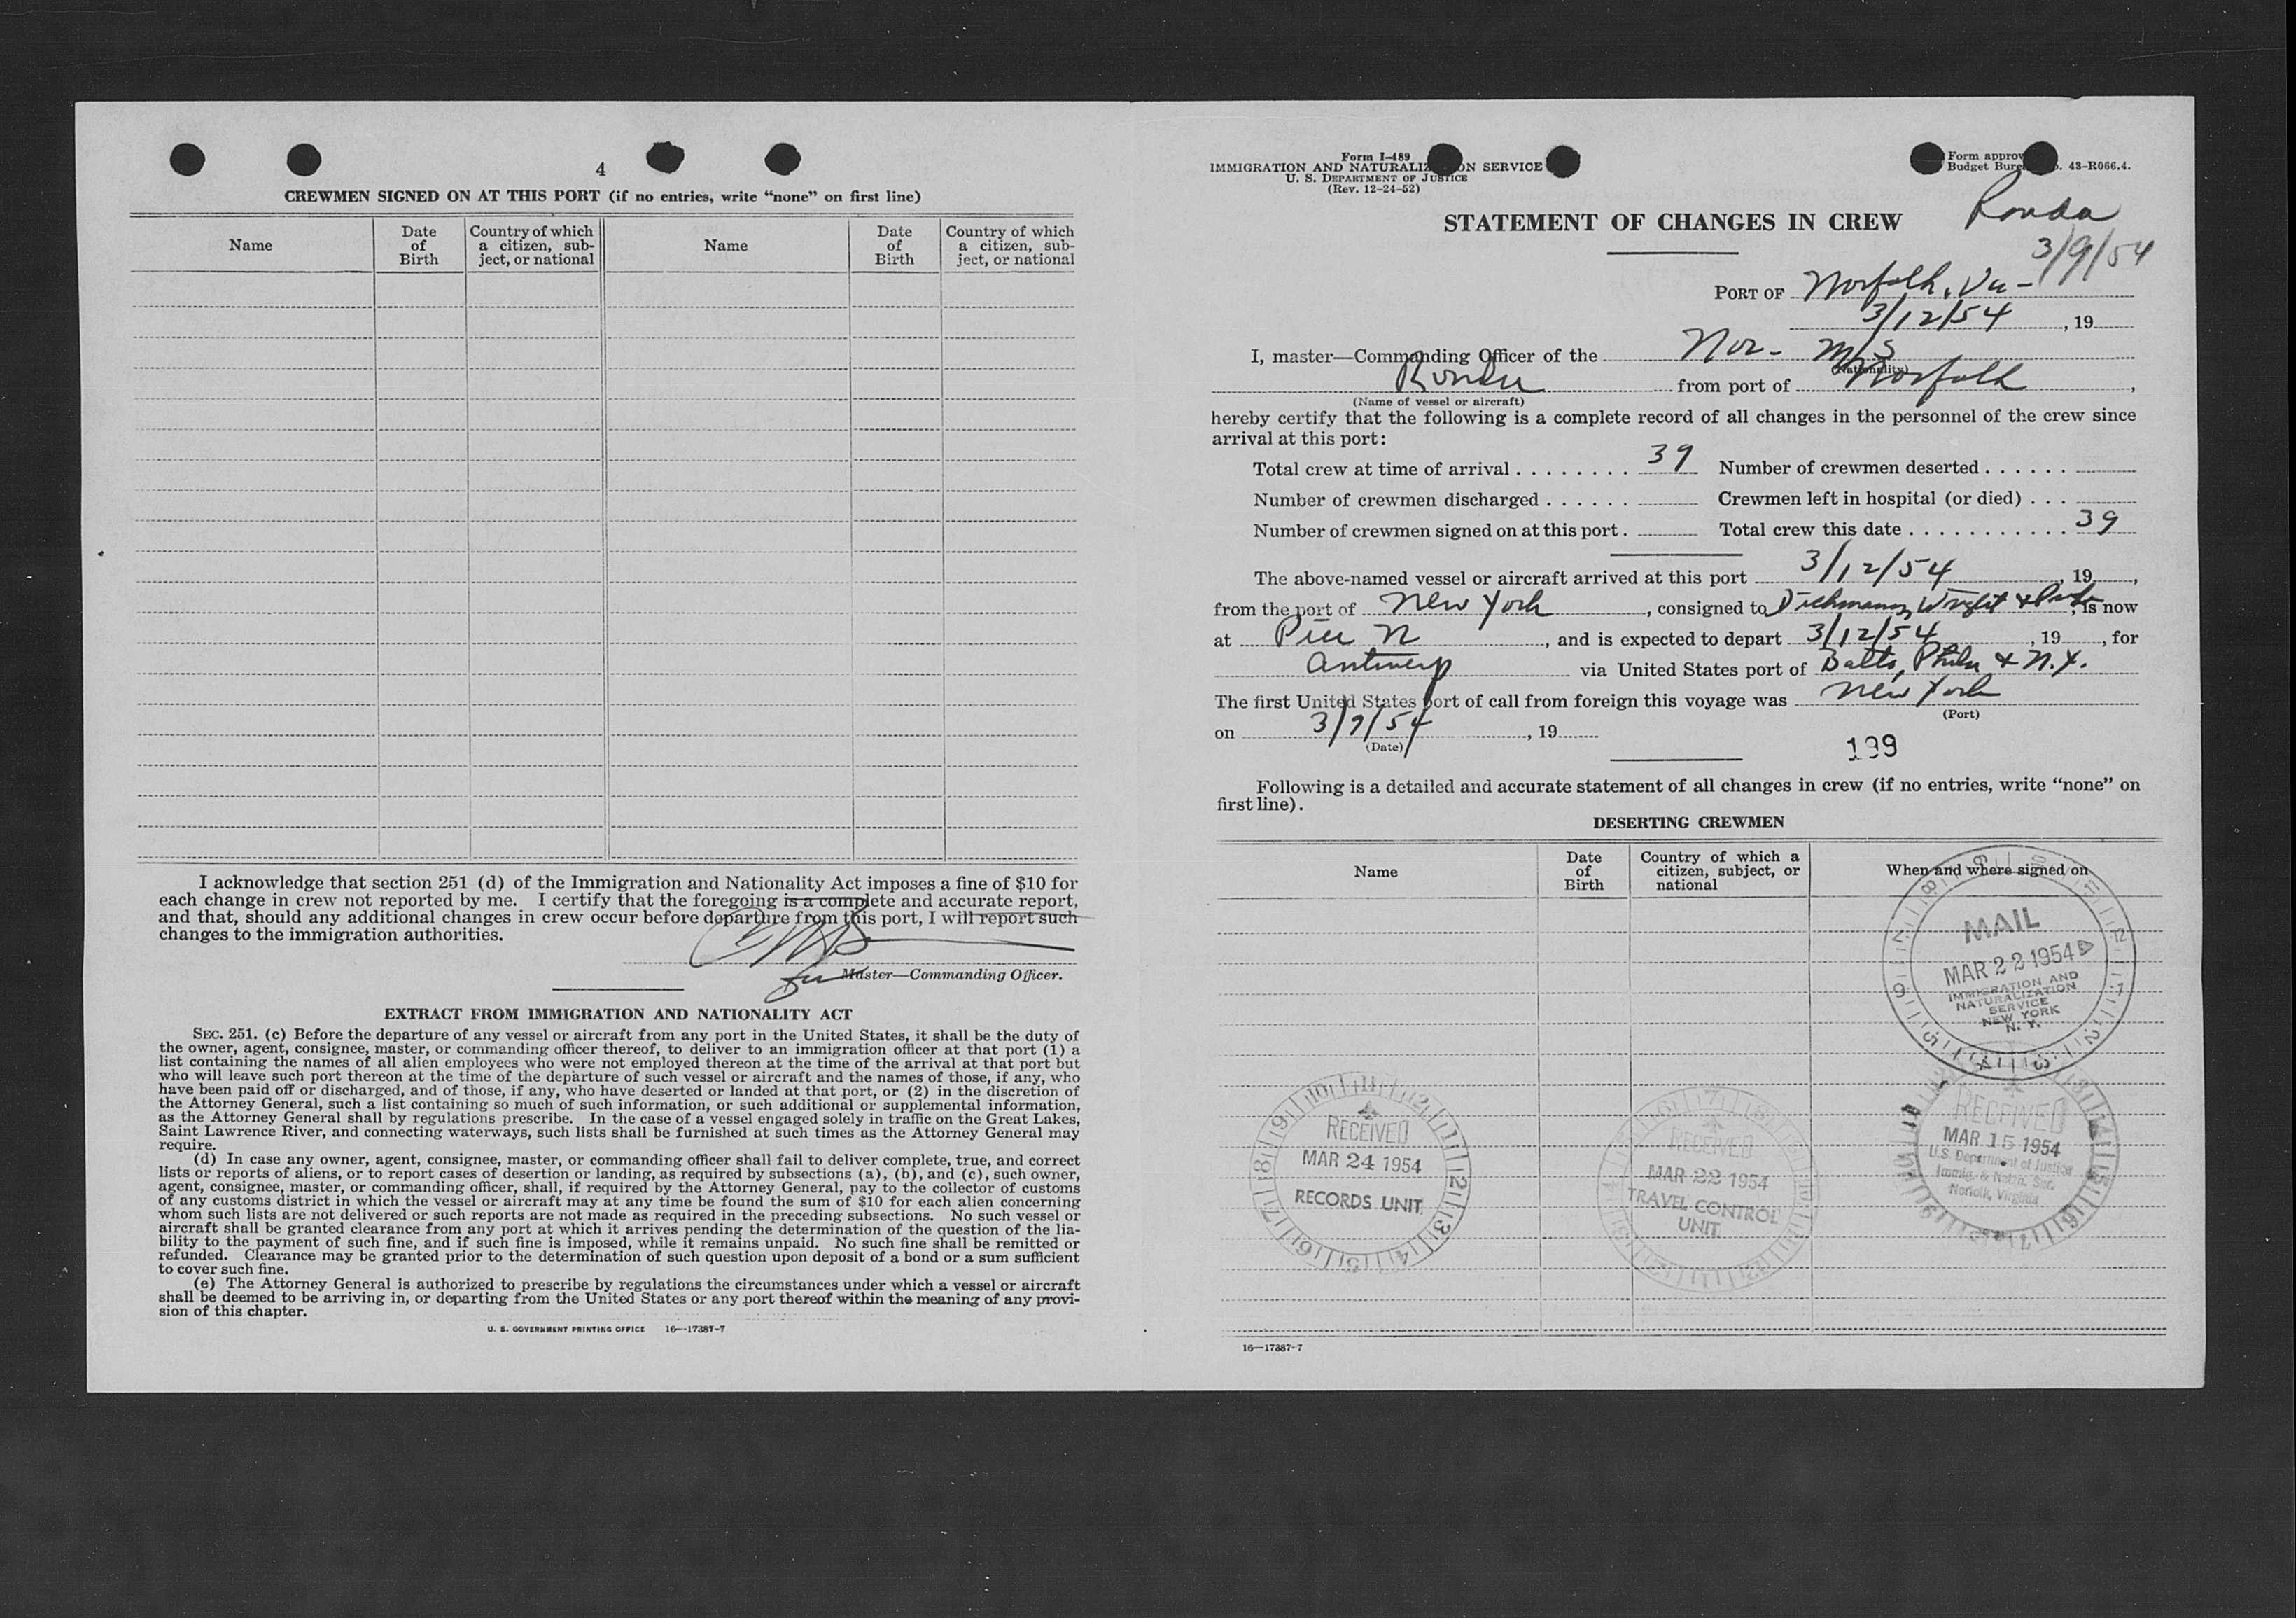 4
CREWMEN SIGNED ON AT THIS PORT (if no entries, write “none” on first line)
Name
Date of Birth
Country of which a citizen, sub-ject, or national
Name
Date of Birth
Country of which a citizen, sub-ject, or national
I acknowledge that section 251 (d) of the Immigration and Nationality Act imposes a fine of $10 for
each change in crew not reported by me. I certify that the foregoing is a complete and accurate report,
and that, should any additional changes in crew occur before departure from this port, I will report such
changes to the immigration authorities.
for Master—Commanding Officer.
EXTRACT FROM IMMIGRATION AND NATIONALITY ACT
SEC. 251. (c) Before the departure of any vessel or aircraft from any port in the United States, it shall be the duty of
the owner, agent, consignee, master, or commanding officer thereof, to deliver to an immigration officer at that port (1) a
list containing the names of all alien employees who were not employed thereon at the time of the arrival at that port but
who will leave such port thereon at the time of the departure of such vessel or aircraft and the names of those, if any, who
have been paid off or discharged, and of those, if any, who have deserted or landed at that port, or (2) in the discretion of
the Attorney General, such a list containing so much of such information, or such additional or supplemental information,
as the Attorney General shall by regulations prescribe. In the case of a vessel engaged solely in traffic on the Great Lakes,
Saint Lawrence River, and connecting waterways, such lists shall be furnished at such times as the Attorney General may
require.
(d) In case any owner, agent, consignee, master, or commanding officer shall fail to deliver complete, true, and correct
lists or reports of aliens, or to report cases of desertion or landing, as required by subsections (a), (b), and (c), such owner,
agent, consignee, master, or commanding officer, shall, if required by the Attorney General, pay to the collector of customs
of any customs district in which the vessel or aircraft may at any time be found the sum of $10 for each alien concerning
whom such lists are not delivered or such reports are not made as required in the preceding subsections. No such vessel or
aircraft shall be granted clearance from any port at which it arrives pending the determination of the question of the lia-
bility to the payment of such fine, and if such fine is imposed, while it remains unpaid. No such fine shall be remitted or
refunded. Clearance may be granted prior to the determination of such question upon deposit of a bond or a sum sufficient
to cover such fine.
(e) The Attorney General is authorized to prescribe by regulations the circumstances under which a vessel or aircraft
shall be deemed to be arriving in, or departing from the United States or any port thereof within the meaning of any provi-
sion of this chapter.
U. S. GOVERNMENT PRINTING OFFICE 16—17387-7
Form I-489
IMMIGRATION AND NATURALIZ ON SERVICE
U. S. DEPARTMENT OF JUSTICE
(Rev. 12-24-52)
Form approv
Budget Bure . 43-R066.4.
STATEMENT OF CHANGES IN CREW
Ronda
3/9/54
PORT OF Norfolk, Va-
3/12/54, 19
I, master—Commanding Officer of the Nor- M/S
(Nationality)
Ronda from port of Norfolk,
(Name of vessel or aircraft)
hereby certify that the following is a complete record of all changes in the personnel of the crew since
arrival at this port:
Total crew at time of arrival . . . . . . . . 39 Number of crewmen deserted . . . . . .
Number of crewmen discharged . . . . . . Crewmen left in hospital (or died) . . .
Number of crewmen signed on at this port . Total crew this date . . . . . . . . . . . . 39
The above-named vessel or aircraft arrived at this port 3/12/54, 19,
from the port of New York, consigned to Dichmann, Wright & Pugh, is now
at Pier N, and is expected to depart 3/12/54, 19, for
Antwerp via United States port of Balto, Phila & N.Y.
The first United States port of call from foreign this voyage was New York
(Port)
on 3/9/54, 19
(Date)
199
Following is a detailed and accurate statement of all changes in crew (if no entries, write “none” on
first line).
DESERTING CREWMEN
Name
Date of Birth
Country of which a citizen, subject, or national
When and where signed on
MAIL
MAR 22 1954
IMMIGRATION AND
NATURALIZATION
SERVICE
NEW YORK
N. Y.
RECEIVED
MAR 24 1954
RECORDS UNIT
RECEIVED
MAR 22 1954
TRAVEL CONTROL
UNIT
RECEIVED
MAR 15 1954
U.S. Department of Justice
Immig. & Natn. Ser.
Norfolk, Virginia
16—17387-7